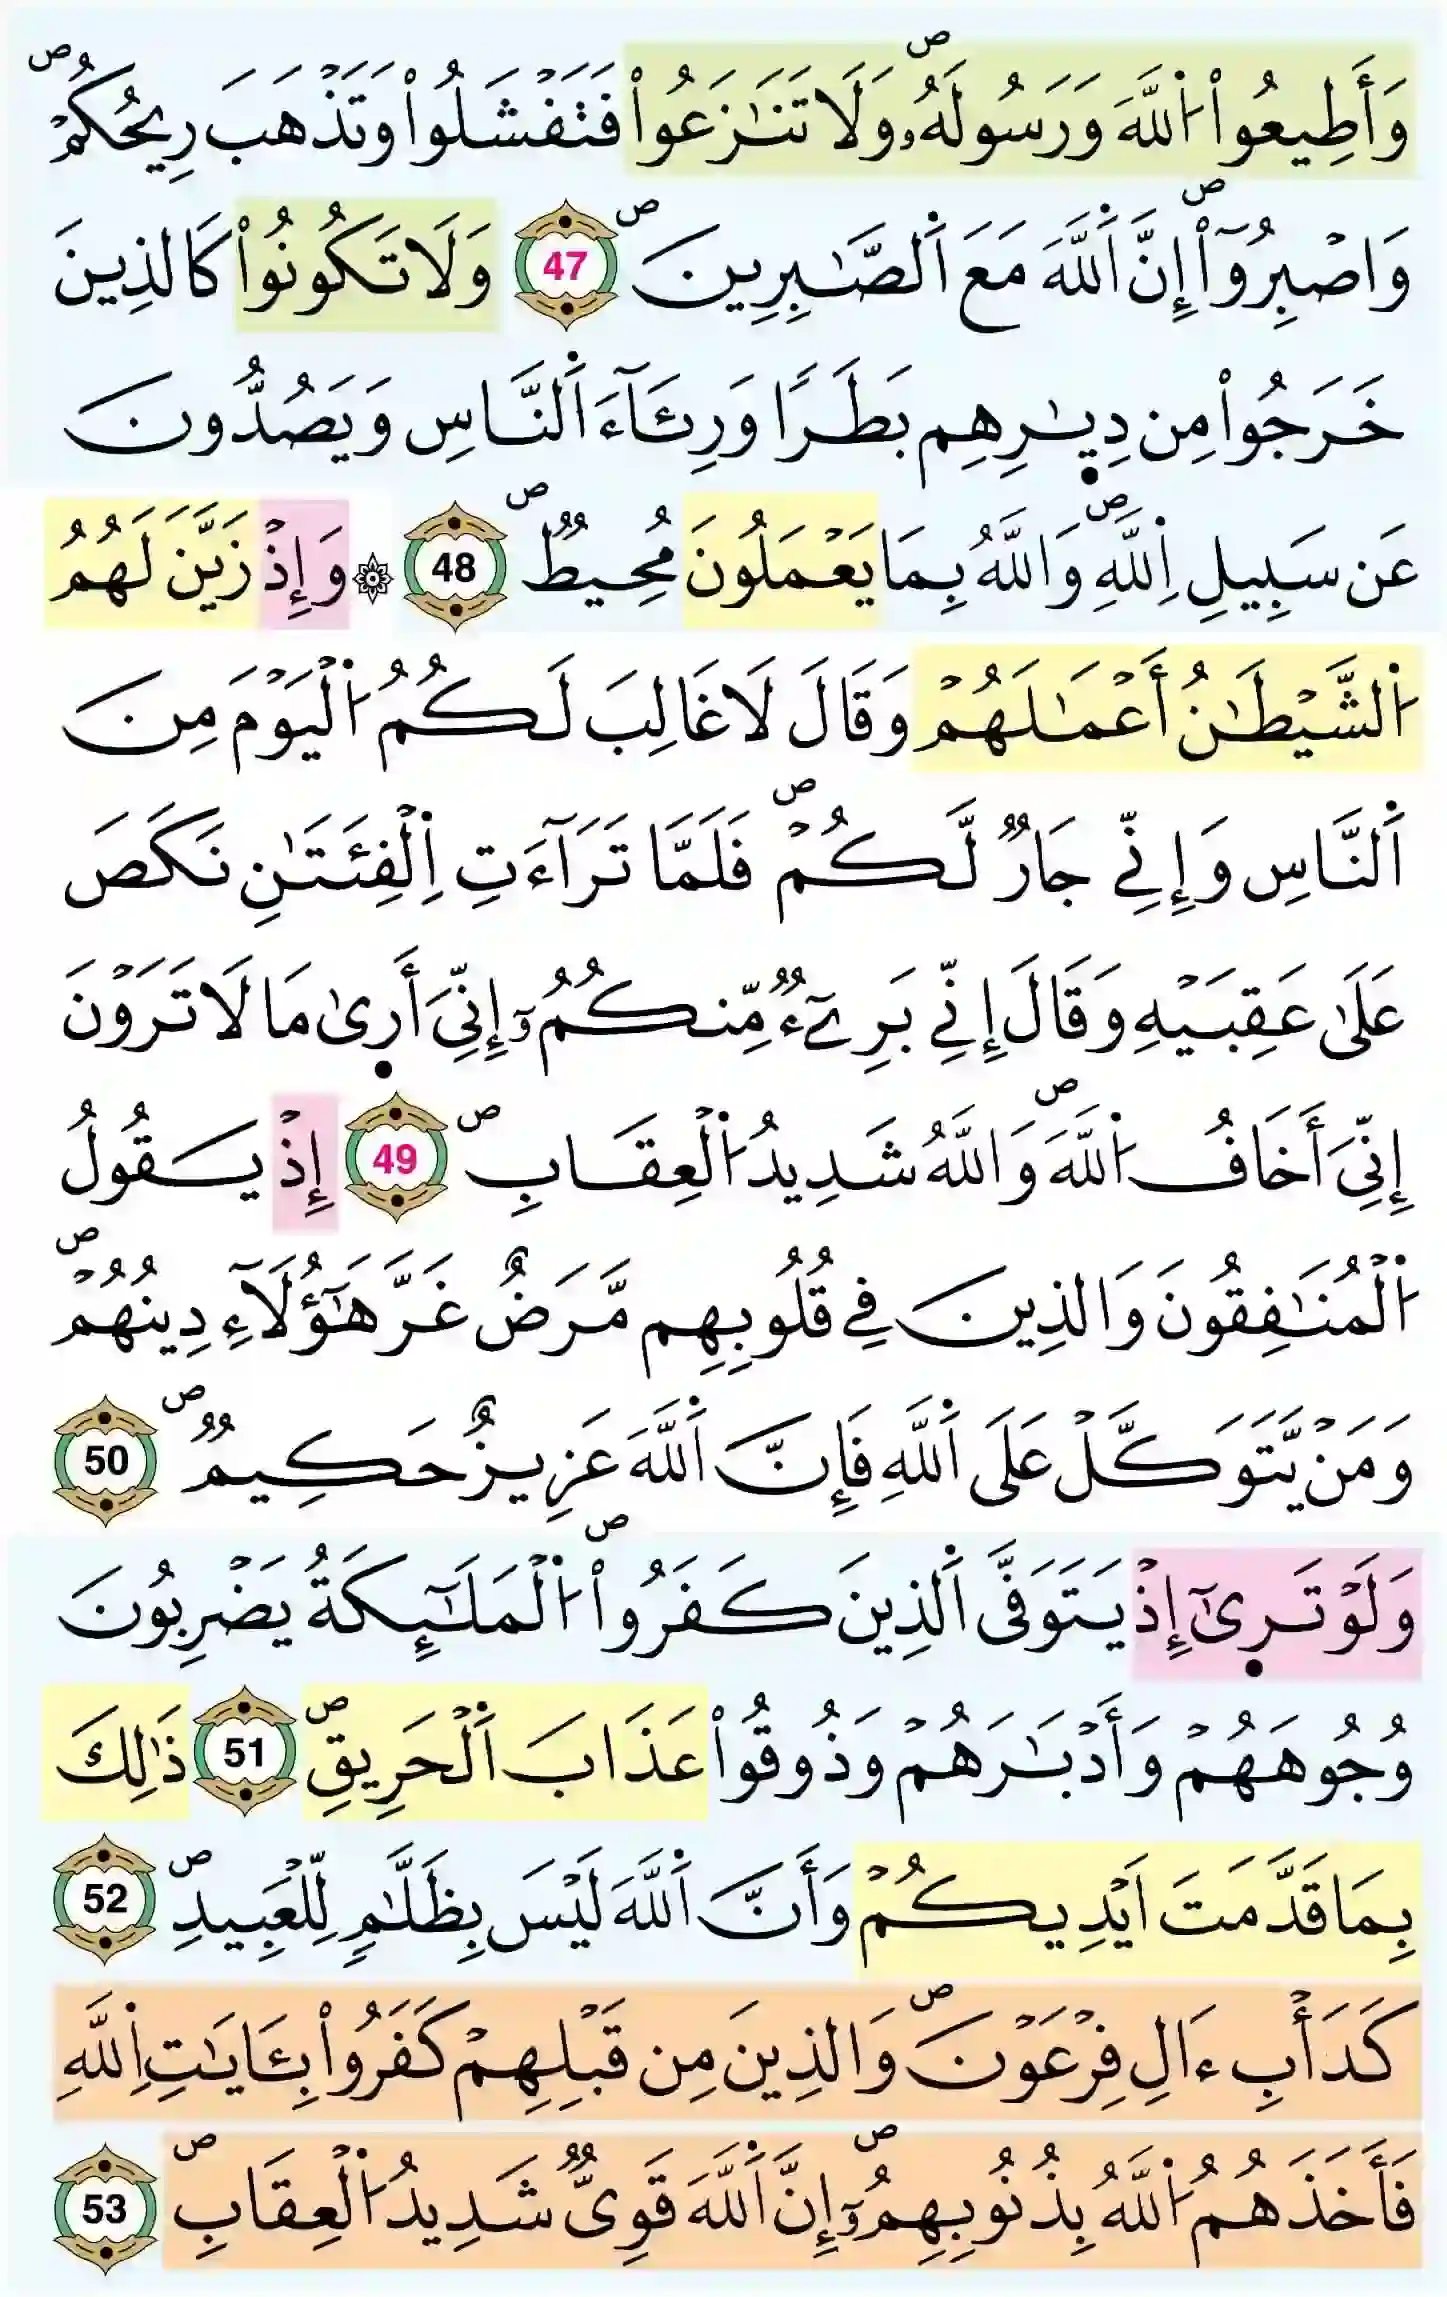 وَأَطِيعُواْ اُللَّهَ وَرَسُولَهُۥ وَلَا تَنَٰزَعُواْ فَتَفْشَلُواْ وَتَذْهَبَ رِيحُكُمْۖ
وَاصْبِرُوٓاْۖ إِنَّ اَللَّهَ مَعَ اَلصَّٰبِرِينَۖ 47 وَلَا تَكُونُواْ كَالذِينَ
خَرَجُواْ مِن دِيٰ۪رِهِم بَطَرًا وَرِئَآءَ اَلنَّاسِ وَيَصُدُّونَ
عَن سَبِيلِ اِللَّهِۖ وَاللَّهُ بِمَا يَعْمَلُونَ مُحِيطٌۖ 48 ۞ وَإِذْ زَيَّنَ لَهُمُ
اُلشَّيْطَٰنُ أَعْمَٰلَهُمْ وَقَالَ لَا غَالِبَ لَكُمُ اُلْيَوْمَ مِنَ
اَلنَّاسِ وَإِنِّے جَارٌ لَّكُمْۖ فَلَمَّا تَرَآءَتِ اِلْفِئَتَٰنِ نَكَصَ
عَلَىٰ عَقِبَيْهِ وَقَالَ إِنِّے بَرِےٓءٌ مِّنكُمُۥٓ إِنِّيَ أَر۪ىٰ مَا لَا تَرَوْنَ
إِنِّيَ أَخَافُ اُللَّهَۖ وَاللَّهُ شَدِيدُ اُلْعِقَابِۖ 49 إِذْ يَقُولُ
اُلْمُنَٰفِقُونَ وَالذِينَ فِے قُلُوبِهِم مَّرَضٌ غَرَّ هَٰٓؤُلَآءِ دِينُهُمْۖ
وَمَنْ يَّتَوَكَّلْ عَلَى اَللَّهِ فَإِنَّ اَللَّهَ عَزِيزٌ حَكِيمٌۖ 50
وَلَوْ تَر۪ىٰٓ إِذْ يَتَوَفَّى اَلذِينَ كَفَرُواْۖ اُلْمَلَٰٓئِكَةُ يَضْرِبُونَ
وُجُوهَهُمْ وَأَدْبَٰرَهُمْ وَذُوقُواْ عَذَابَ اَلْحَرِيقِۖ 51 ذَٰلِكَ
بِمَا قَدَّمَتَ اَيْدِيكُمْ وَأَنَّ اَللَّهَ لَيْسَ بِظَلَّٰمٍ لِّلْعَبِيدِۖ 52
كَدَأْبِ ءَالِ فِرْعَوْنَۖ وَالذِينَ مِن قَبْلِهِمْ كَفَرُواْ بِـَٔايَٰتِ اِللَّهِ
فَأَخَذَهُمُ اُللَّهُ بِذُنُوبِهِمُۥٓۖ إِنَّ اَللَّهَ قَوِيٌّ شَدِيدُ اُلْعِقَابِۖ 53